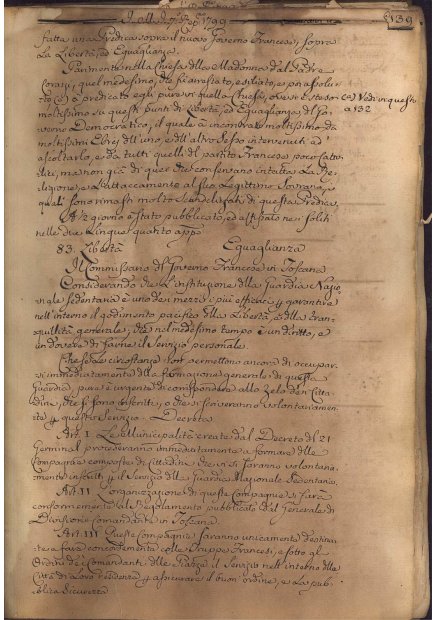 139
fatta una Predica sopra il nuovo Governo Francese, e sopra
la Libertà, ed Eguaglianza.
Parimente nella Chiesa della Madonna dal Padre
a predicato egli pure in quella Chiesa,
(a) Vedi in questo
a 132
moltissimo su questi punti di Libertà, ed Eguaglianza del Go-
verno Democratico, il quale à incontrato moltissimo da
moltissimi Ebrei dell'uno, e dell'altro sesso intervenuti ad
ascoltarlo, e da tutti quelli del partito Francese
ma non già di quei che conservano intatta la Re-
ligione, e l'attaccamento al suo Legittimo Sovrano, i
quali sono rimasti molto scandalizati di questa Predica.
A dì 2 giorno è stato pubblicato, ed affissato nei soliti
nelle due Lingue quanto appo
83. Libertà Eguaglianza
Il Commissario del Governo Francese in Toscana
Considerando che l'instituzione della Guardia Nazio-
nale sedentaria è uno dei mezzi i più efficaci p garantire
nell'interno il godimento pacifico della Libertà, e della tran-
quillità generale, che nel medesimo tempo è un diritto, e
un dovere di farne il servizio personale.
Che se le circostanze non permettono ancora di occupar-
si immediatamente alla formazione generale di questa
Guardia, pure è urgente di corrispondere allo zelo dei Citta-
dini, che si sono inscritti, o che si scriveranno volontariamen-
te p questo servizio - Decreta
Art. I Le Municipalità create dal Decreto del 21
Germinal procederanno immediatamente a formare delle
Compagnie composte di Cittadini che vi si saranno volontaria-
mente inscritti p il servizio della Guardia Nazionale Sedentaria.
Art. II L'organizzazione di queste Compagnie si farà
conformemente al Regolamento pubblicato dal Generale di
Divisione Comandante in Toscana.
Art. III Queste Compagnie saranno unicamente destina-
te a fare concordemente colle Truppe Francesi, e sotto gl'
Ordini dei Comandanti delle Piazze il servizio nell'interno della
Città di loro residenza p assicurare il buon ordine, e la pub-
blica sicurezza